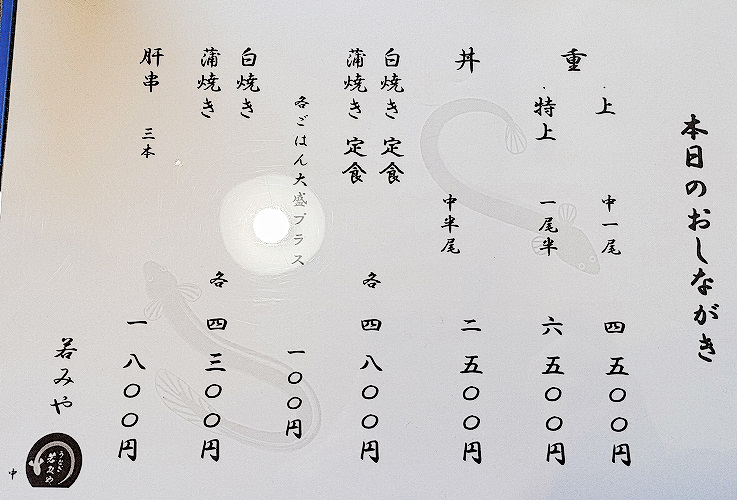 本日のおしながき
重
・上 中一尾 四五〇〇円
・特上 一尾半 六五〇〇円
丼 中半尾 二五〇〇円
白焼き 定食
蒲焼き 定食
各 四八〇〇円
各ごはん大盛プラス 一〇〇円
白焼き
蒲焼き
各 四三〇〇円
肝串 三本 一八〇〇円
若みや
うなぎ
若みや
中